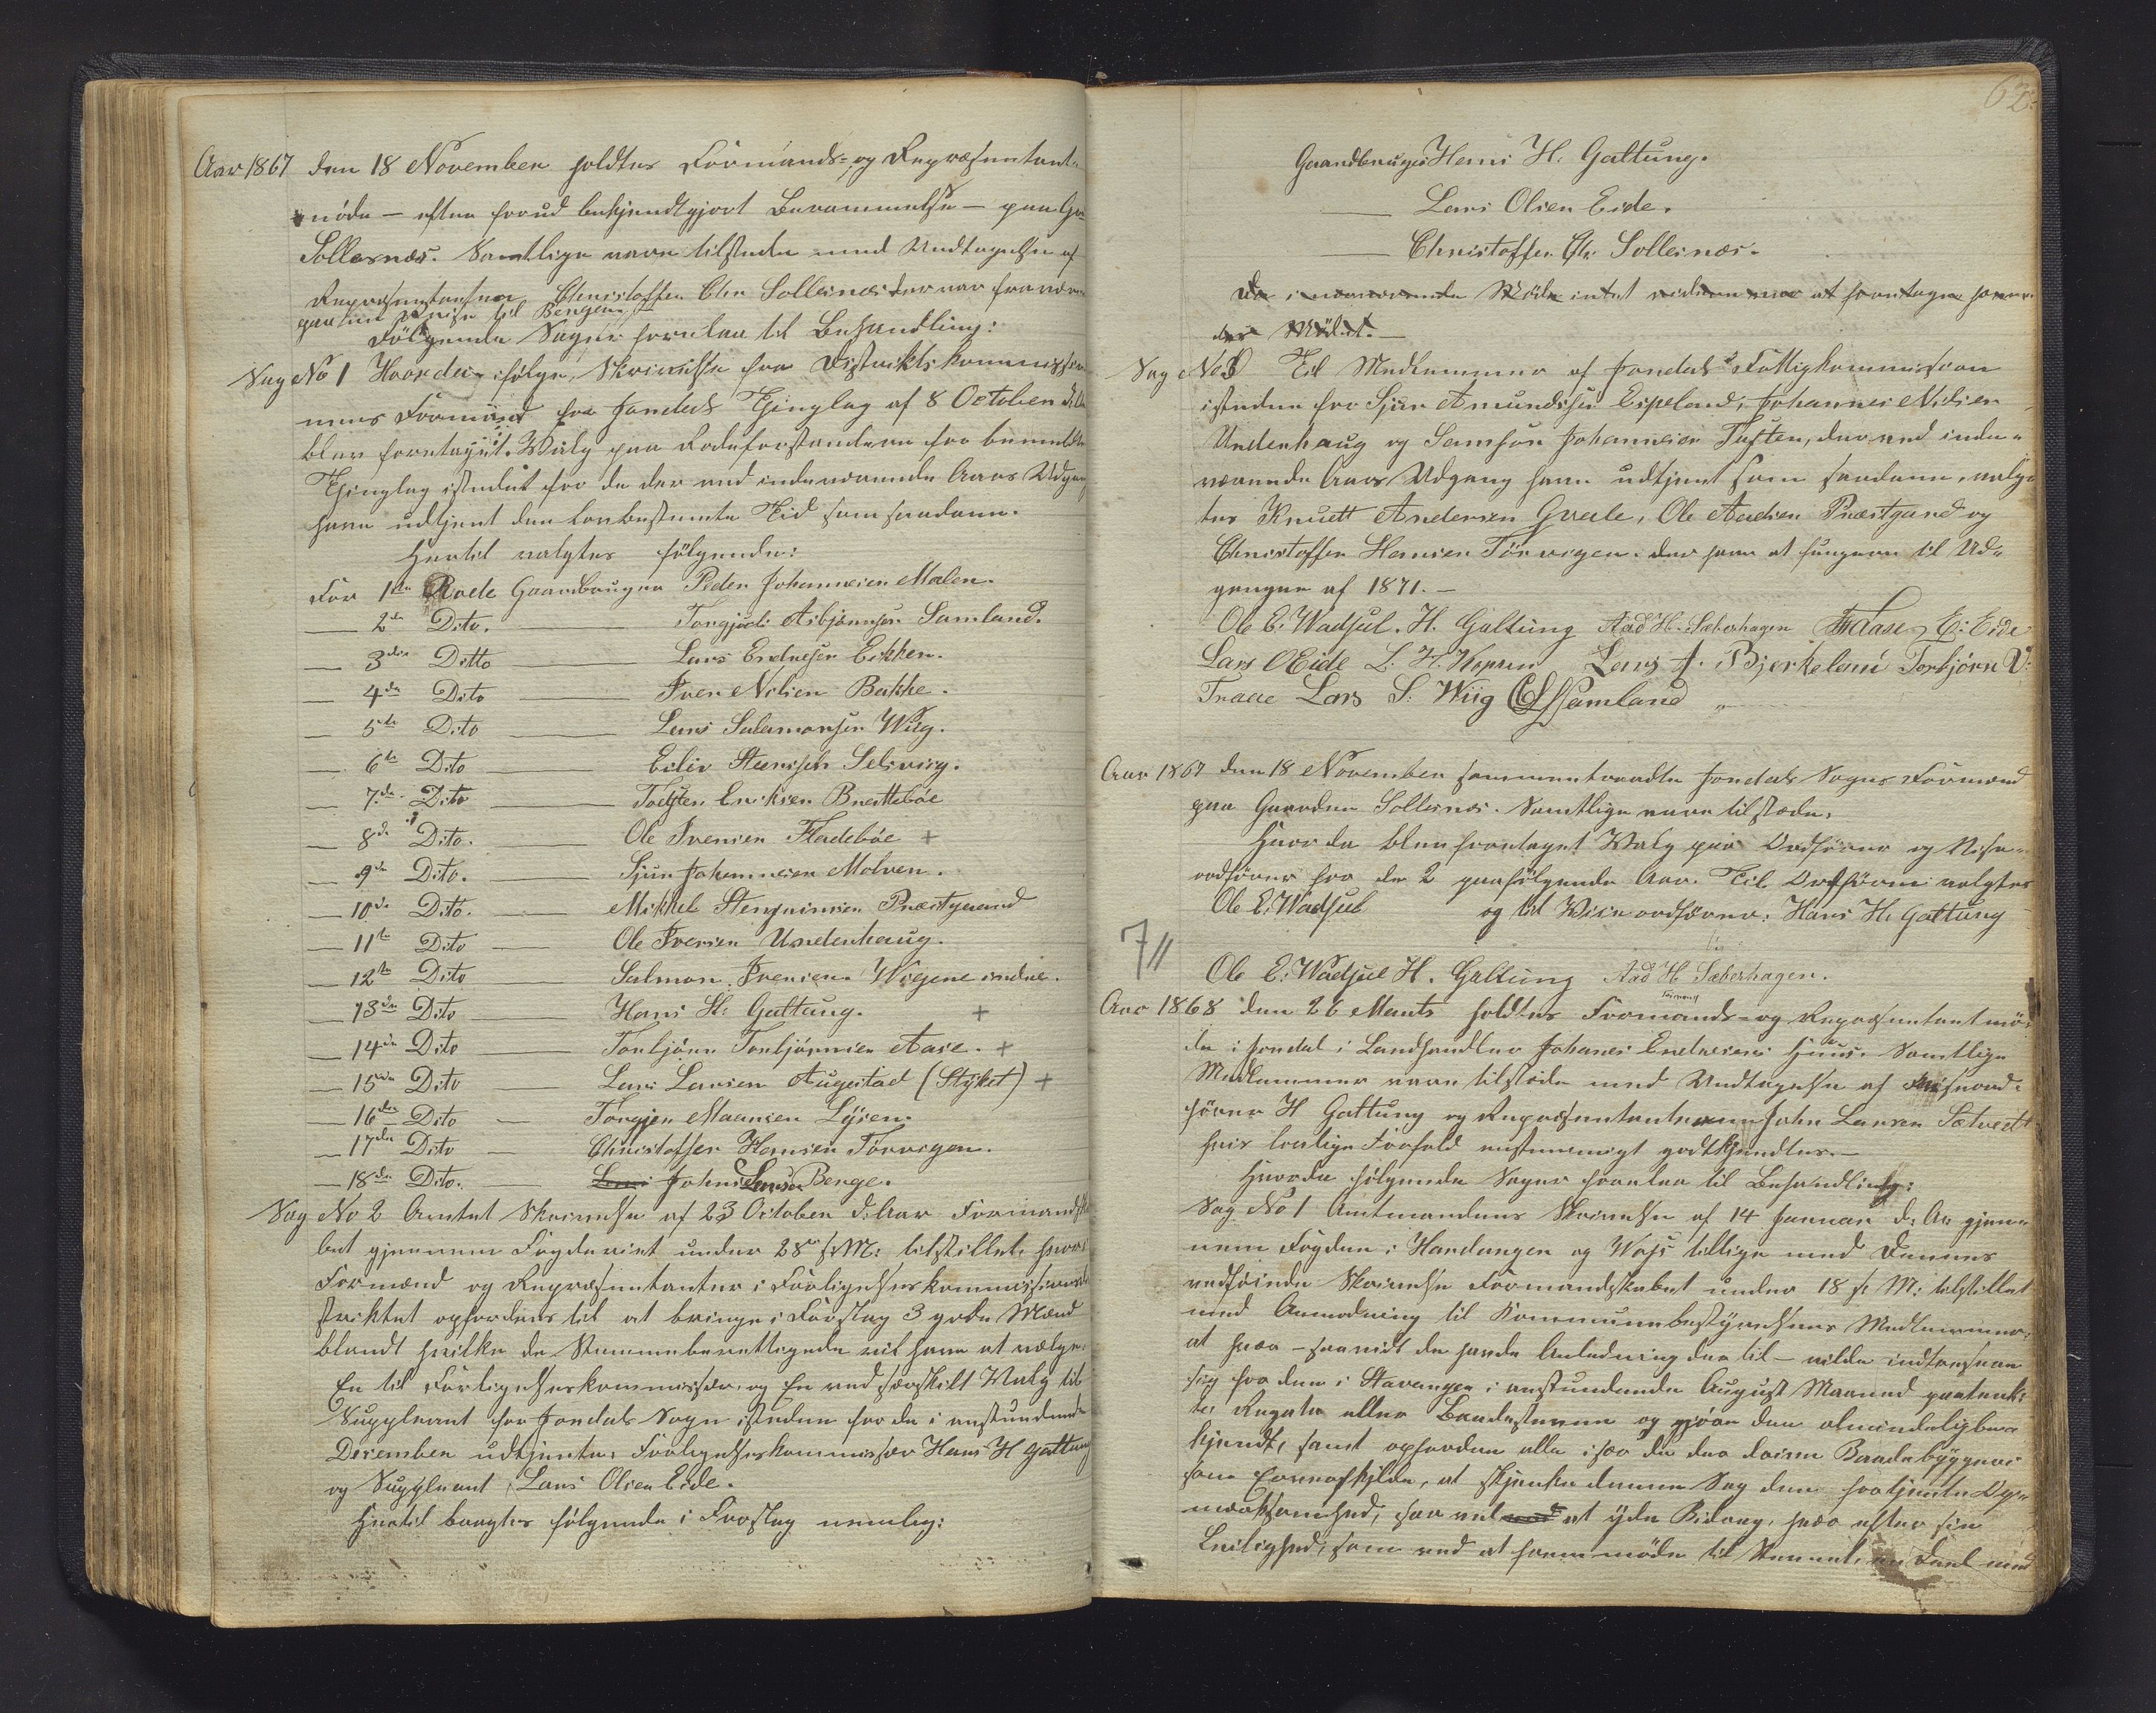 Aar 1867 den 18 November holdtes Formands- og Repræsentant-
møde – efter forud bekjendtgjort Berammelse – paa Gr
Sollesnæs. Samtlige vare tilstede med Undtagelse af
Repræsentanten Christoffer Chr. Sollesnæs der var fraværen
paa en Reise til Bergen.
Følgende Sager forelaa til Behandling:
Sag No 1 Hvorda ifølge Skrivelse fra Distriktskommissio
nens Formand for Jondals Thinglag af 8 October d. A.
blev foretaget Valg paa Rodeforstandere for bemeldte
Thinglag istedet for de der ved indeværende Aars Udgang
have udtjent den lovbestemte Tid som saadanne.
Hertil valgtes følgende:
For 1ste Rode Gaardbruger Peder Johannesen Malen.
— 2den Dito. — Torgjuls Asbjørnsen Samland.
— 3die Ditto — Lars Endresen Eikken.
— 4de Dito — Iver Nilsen Bakke.
— 5te Dito — Lars Salamonsen Wiig.
— 6te Dito — Eiliv Steensen Selsviig.
— 7de Dito — Torsten Eriksen Brattebøe
— 8de Dito. — Ole Iversen Fladebøe +
— 9de Dito. — Sjur Johannesen Molven.
— 10de Dito. — Mikkel Stengrimsen Præstgaard
— 11te Dito — Ole Iversen Underhaug.
— 12te Dito — Salmon Iversen Vigene indre.
— 13de Dito — Hans H. Galtung. +
— 14de Dito — Torbjørn Torbjørnsen Aase. +
— 15de Dito — Lars Larsen Augestad (Stykket) +
— 16de Dito — Torgjer Maansen Lysen.
— 17de Dito — Christoffer Hansen Tørvigen.
— 18de Dito. — Lars Johns Larsen Berge.
Sag No 2 Amtets Skrivelse af 23 October d. Aar Formandska
bet gjennem Fogderiet under 28de s. M. tilstillet, hvori
Formænd og Repræsentanter i Forligelseskommissionsdi
striktet opfordres til at bringe i Forslag 3 gode Mænd
blandt hvilke de Stemmeberettigede vil have at vælge
En til Forligelseskommissær, og En ved særskilt Valg til
Suppleant for Jondals Sogn isteden for de i anstundende
December udtjente, Forligelseskommissær Hans H Galtung
og Suppleant Lars Olsen Eide.
Hertil bragtes følgende i Forslag nemlig:
62.
Gaardbruger Hans H. Galtung.
— Lars Olsen Eide.
— Christoffer Chr. Sollesnæs.
Da i nærværende Møde intet videre var at foretages hæve
des Mødet.—
Sag No 3 Til Medlemmer af Jondals Fattigkommission
isteden for Sjur Amundsen Espeland, Johannes Nilsen
Underhaug og Samson Johannesen Tuften, der ved inde-
værende Aars Udgang have udtjent som saadanne, valg-
tes Knuett Andersen Gvale, Ole Aadsen Præstgard og
Christoffer Hansen Tørvigen. der have at fungere til Ud-
gangen af 1871.—
Ole E. Wadsel. H. Galtung Aad H. Sæbershagen T T Aase, E: Eide
Lars OEide L. H. Lars A. Bjerkeland Torbjørn V.
Traae Lars S. Wiig Samland
Aar 1867 den 18 November sammentraadte Jondals Sogns Formænd
paa Gaarden Sollesnæs. Samtlige vare tilstede.
Hvorda blev foretaget Valg paa Ordfører og Vise-
ordfører for de 2 paafølgende Aar. Til Ordfører valgtes
Ole E. Wadsel og til Viseordfører: Hans H. Galtung
7//
Ole E. Wadsel H. Galtung Aad H. Sæbershagen.
Aar 1868 den 26 Marts holdtes Formands- og Repræsentantmø-
de i Jondal i Landhandler Johanes Endresens Huus. Samtlige
Medlemmer vare tilstede med Undtagelse af Viseord-
fører H Galtung og Repræsentanterne John Larsen Sætveit
hvis lovlige Forfald enstemmigt godtkjendtes.—
Hvorda følgende Sager forelaa til Behandling:
Sag No 1 Amtmandens Skrivelse af 14 Januar d. Ar gjen-
nem Fogden i Hardanger og Vos tillige med Dennes
vedføiede Skrivelse Formandskabet under 18 s. M. tilstillet
med Anmodning til Kommunebestyrelsens Medlemmer,
at hver – saavidt de havde Anledning dertil – vilde interessere
sig for den i Stavanger i anstundende August Maaned paatænk-
te, Regatta eller Baadestevne og gjøre den almindelig be-
kjendt, samt opfordre alle især de der drive Baadebyggeri
som Erhvervskilde, at skjenke denne Sag den fortjente Op-
mærksomhed, saa vel ved at yde Bidrag, hver efter sin
Leilighed, som ved at fremmøde til Stevnet, en Deel med